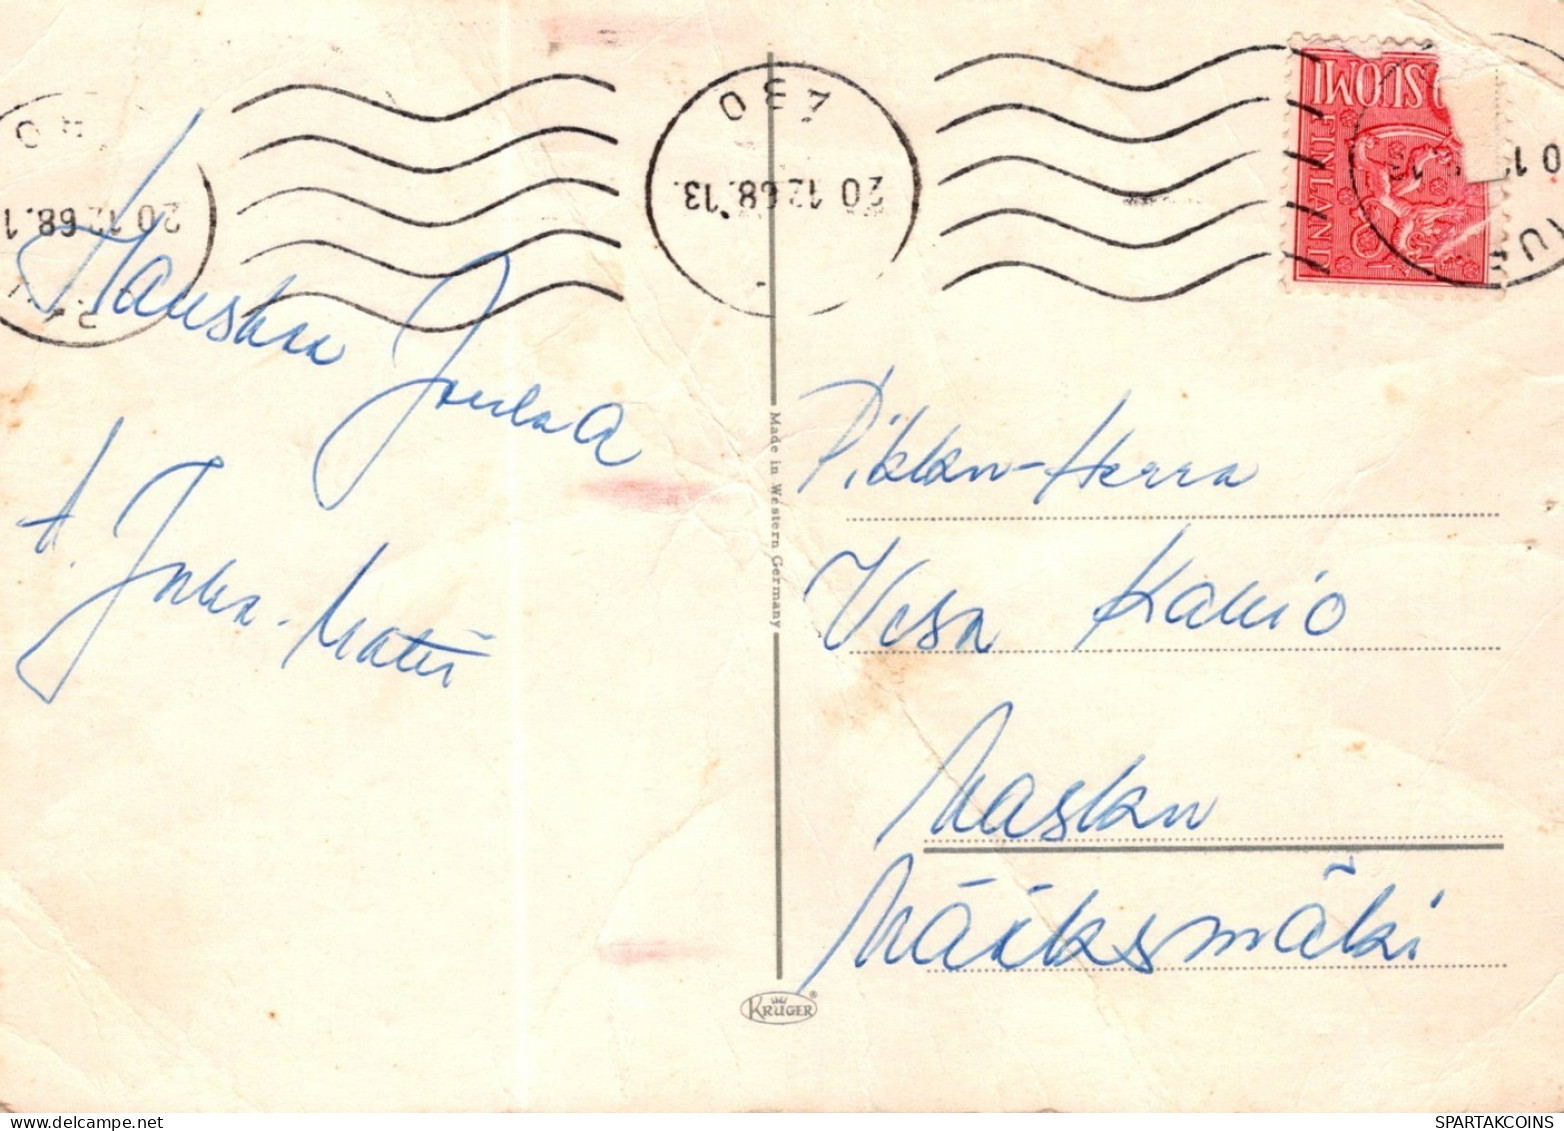 430
20.12.68.13
20.12.68.1
SUOMI
FINLAND
Hauskaa
Joulua
t. Juha-Matti
Made in Western Germany
Pikku-Herra
Vesa Kallio
Masku
Näiksmäki
KRÜGER
SPARTAKCOINS